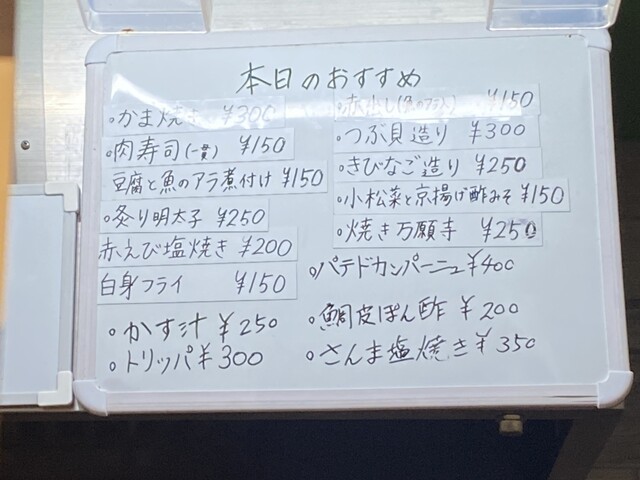 本日のおすすめ
。かま焼き ¥300
。肉寿司(一貫) ¥150
豆腐と魚のアラ煮付け ¥150
。炙り明太子 ¥250
赤えび塩焼き ¥200
白身フライ ¥150
。かす汁 ¥250
。トリッパ ¥300
。赤出し(魚のアラ入) ¥150
。つぶ貝造り ¥300
。きびなご造り ¥250
。小松菜と京揚げ酢みそ ¥150
。焼き万願寺 ¥250
。パテドカンパーニュ ¥400
。鯛皮ぽん酢 ¥200
。さんま塩焼き ¥350